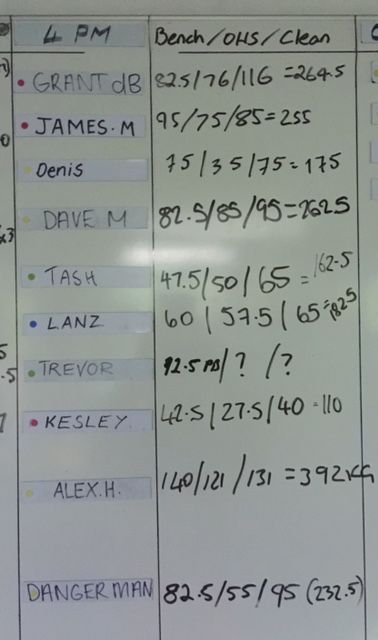 4 PM Bench/OHS/Clean
GRANT dB 82.5/76/116 =264.5
JAMES.M 95/75/85=255
Denis 75/35/75=175
DAVE M 82.5/85/95=262.5
TASH 47.5/50/65 =162.5
LANZ 60/57.5/65=182.5
TREVOR 92.5 PB/?/?
KESLEY 42.5/27.5/40=110
ALEX.H. 140/121/131=392KG
DANGERMAN 82.5/55/95 (232.5)